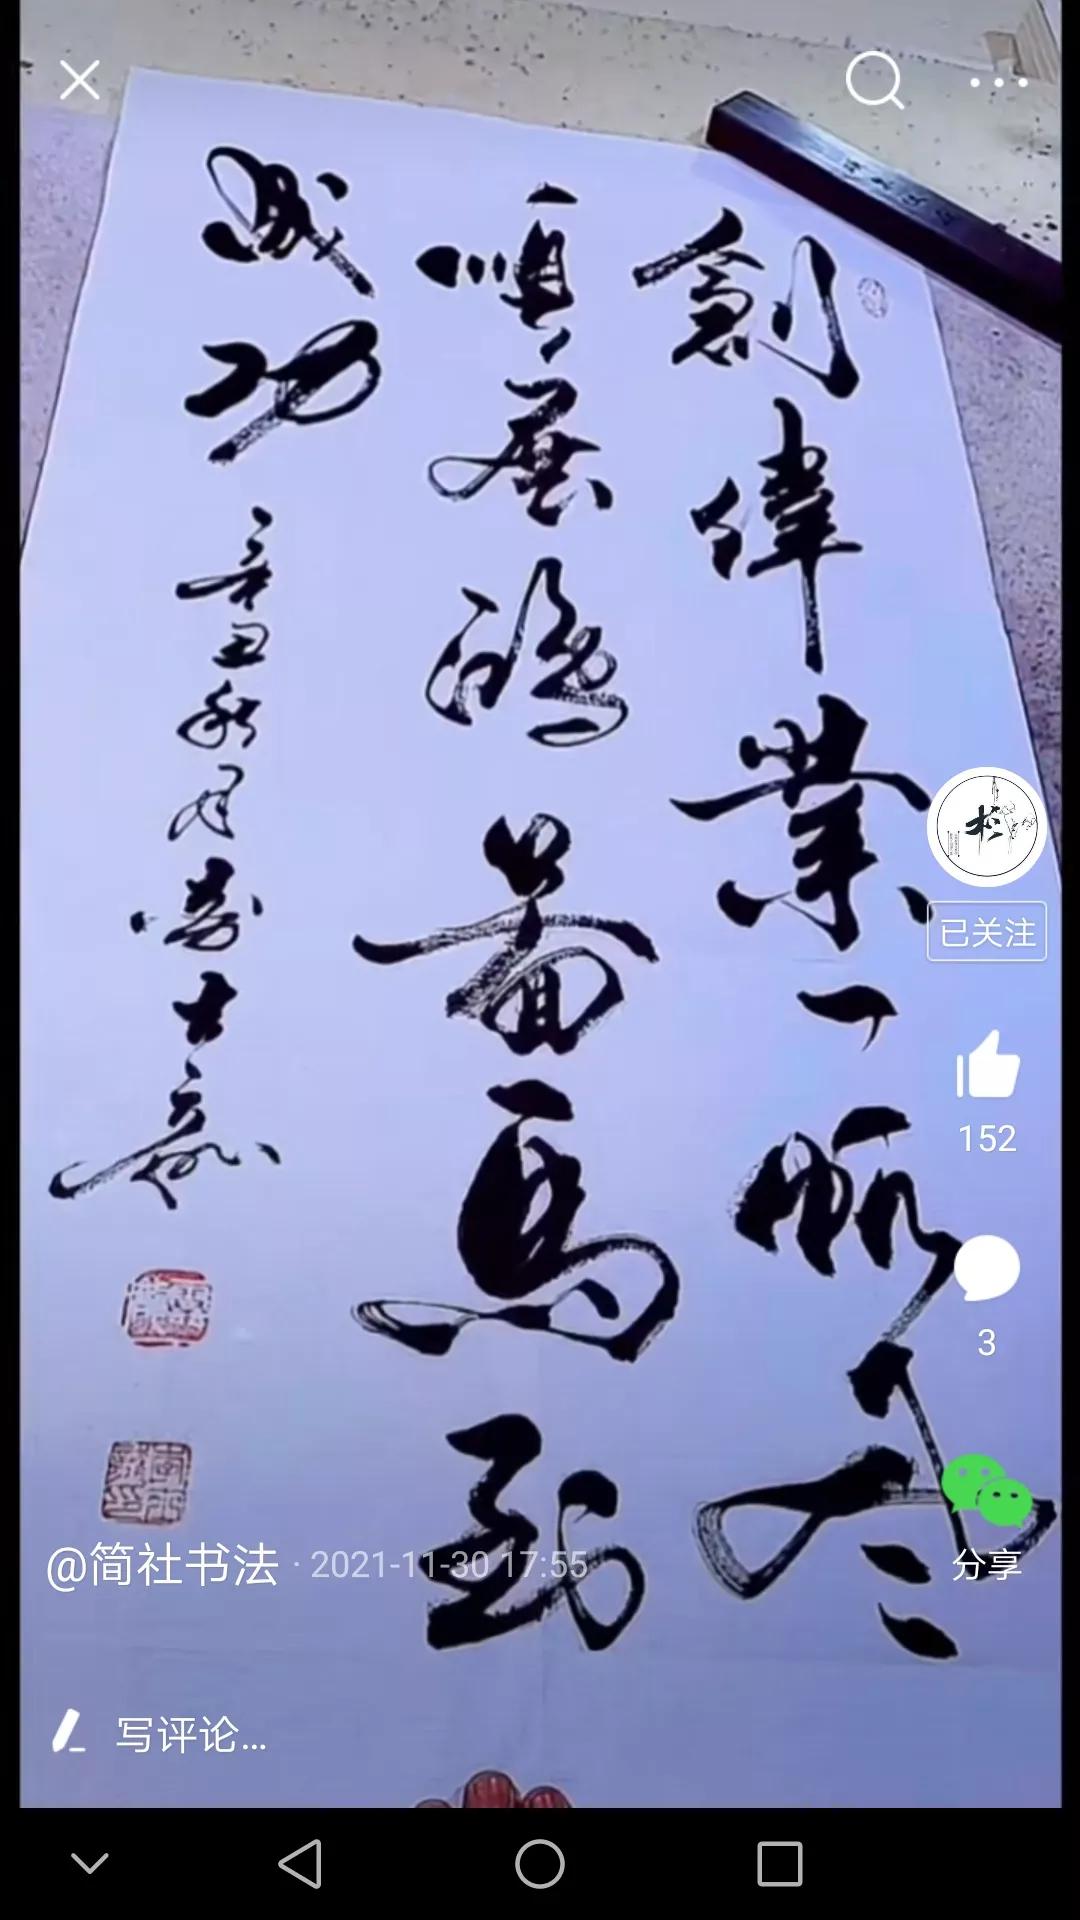 創偉業一帆風
順展鴻啚馬到
成功
辛丑秋月
已关注
152
3
分享
@简社书法 · 2021-11-30 17:55
写评论...